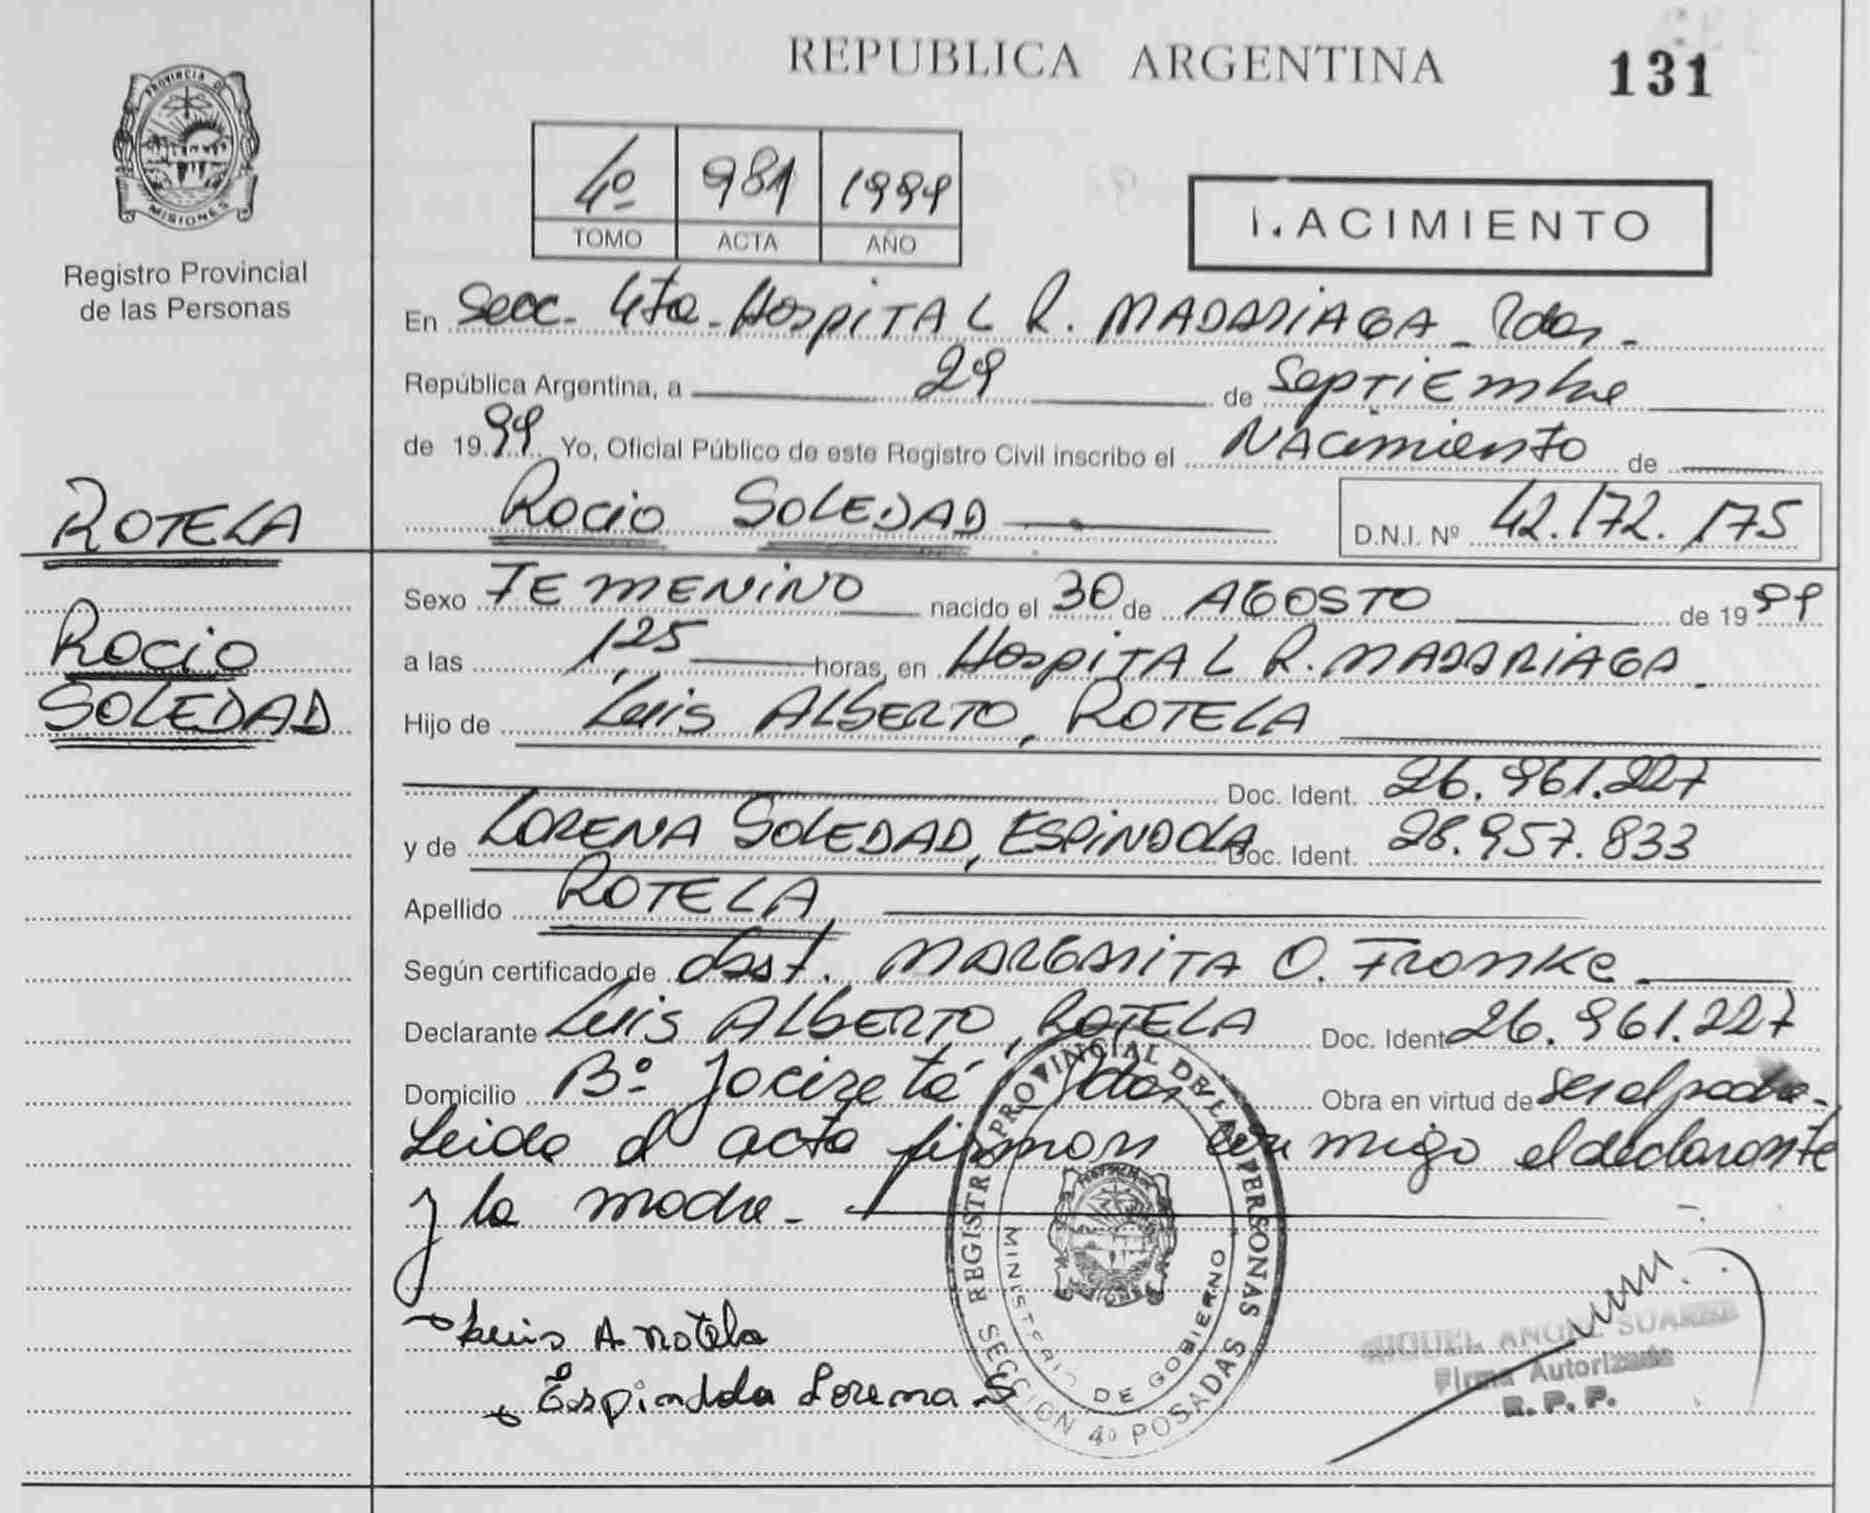 REPUBLICA ARGENTINA
131
PROVINCIA DE
MISIONES
Registro Provincial
de las Personas
4º 981 1999
TOMO ACTA AÑO
NACIMIENTO
En Secc. 4ta. HOSPITAL R. MADARIAGA - Pdas.
República Argentina, a 29 de Septiembre
de 1999 Yo, Oficial Público de este Registro Civil inscribo el NACimiento de
ROCIO SOLEDAD
D.N.I. Nº 42.172.175
ROTELA
ROCIO
SOLEDAD
Sexo FEMENINO nacido el 30 de AGOSTO de 1999
a las 1,25 horas, en HOSPITAL R. MADARIAGA.
Hijo de Luis ALBERTO, ROTELA
Doc. Ident. 26.961.227
y de LORENA SOLEDAD, ESPINDOLA Doc. Ident. 28.957.833
Apellido ROTELA,
Según certificado de Obst. MARGARITA O. FRONKE
Declarante Luis ALBERTO, ROTELA Doc. Ident. 26.961.227
Domicilio Bº Yacireta Pdas Obra en virtud de ser el padre.
Leida el acta firman conmigo el declarante
y la madre -
Luis A Rotela
Espindola Lorena S
REGISTRO PROVINCIAL DE LAS PERSONAS
MINISTERIO DE GOBIERNO
SECCION 4º POSADAS
MIGUEL ANGEL SUAREZ
Firma Autorizada
R. P. P.